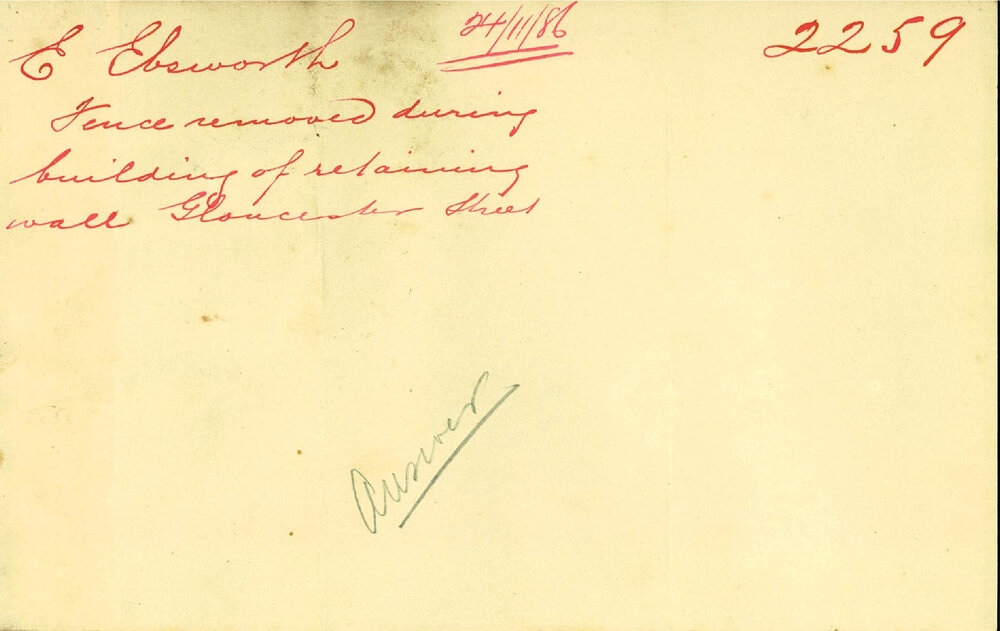 24/11/86
2259
E Ebsworth
Fence removed during
building of retaining
wall Gloucester Street
Answer